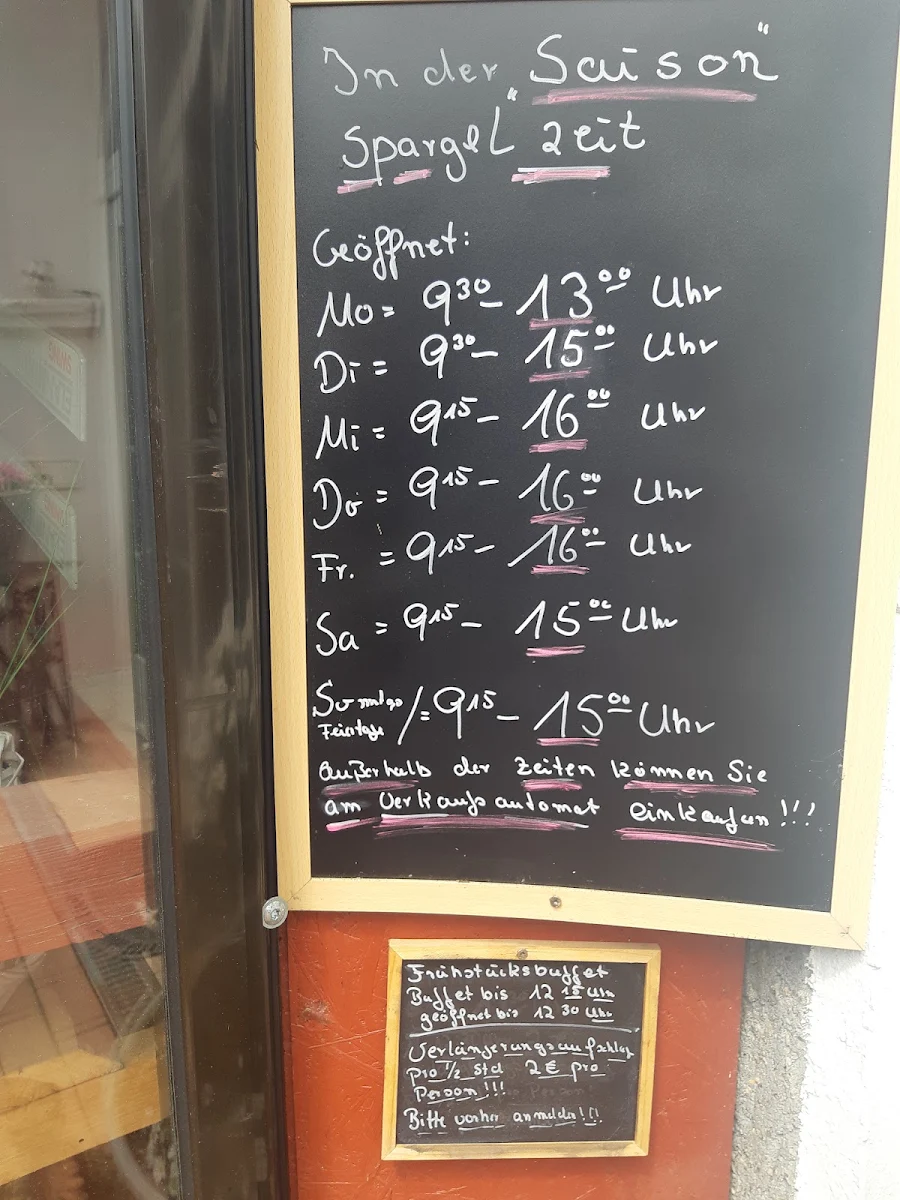 In der Saison"
"Spargel zeit
Geöffnet:
Mo = 9³⁰ - 13⁰⁰ Uhr
Di = 9³⁰ - 15⁰⁰ Uhr
Mi = 9¹⁵ - 16⁰⁰ Uhr
Do = 9¹⁵ - 16⁰⁰ Uhr
Fr. = 9¹⁵ - 16⁰⁰ Uhr
Sa = 9¹⁵ - 15⁰⁰ Uhr
Sonntgs
Feiertage /= 9¹⁵ - 15⁰⁰ Uhr
außerhalb der Zeiten können Sie
am Verkaufsautomat einkaufen!!!
Frühstücksbuffet
Buffet bis 12 15 Uhr
geöffnet bis 12 30 Uhr
Verlängerungsaufschlag
pro ½ std 2 € pro
Person!!!
Bitte vorher anmelden!!!